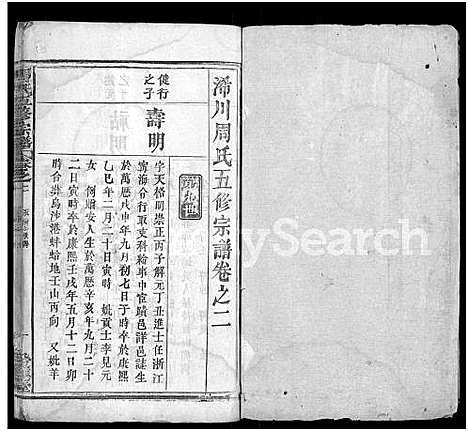 浠川周氏五修宗譜卷之二
第九世
健行之子
壽明
字天格明崇正丙子解元丁丑進士任浙江
寧海分行取支科給事中宦蹟邑詳邑誌生
於萬歷戊申年九月初七日子時卒於康熙
乙巳年二月二十日寅時 姚貢士李見元
女 例贈安人生於萬歷辛亥年九月二十
二日寅時卒於康熙壬戌年五月十二日卯
時合塟烏沙港蚌蛤地壬山丙向 又姚羊